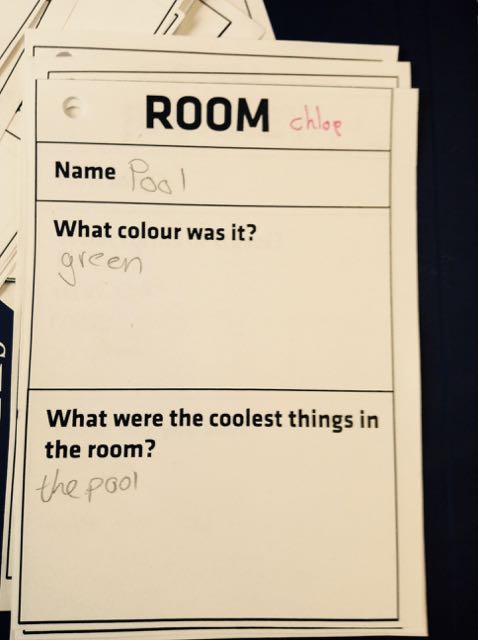 ROOM chloe
Name Pool
What colour was it?
green
What were the coolest things in
the room?
the pool